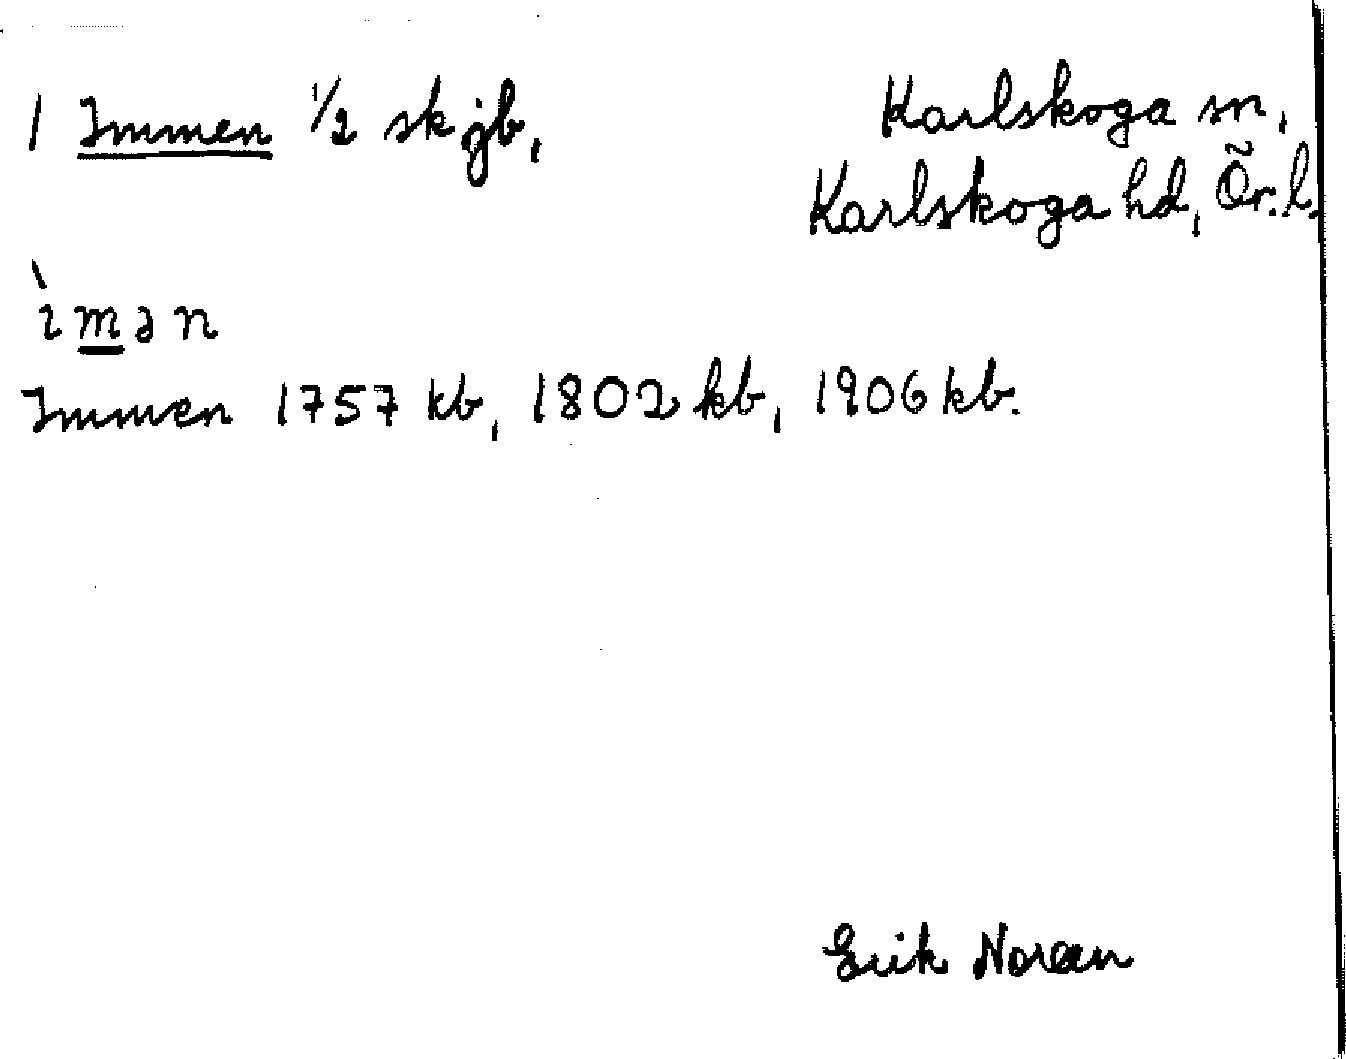 1 Immen 1/2 skjb,
Karlskoga sn,
Karlskoga hd, Ör. l.
ìmən
Immen 1757 kb, 1802 kb, 1906 kb.
Erik Noreen